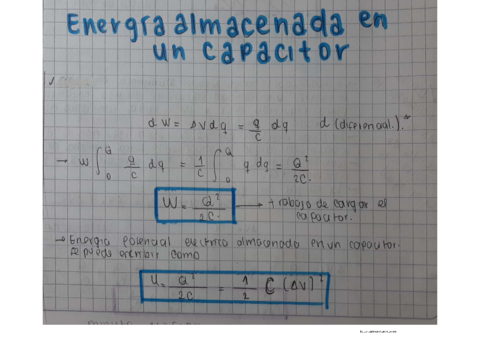 Energía almacenada en
un capacitor
dW = ΔVdq = q/C dq d (diferencial).
→ W ∫₀^Q q/C dq = 1/C ∫₀^Q q dq = Q²/2C.
W = Q²/2C → trabajo de cargar el
capacitor.
→ Energia potencial electrica almacenada en un capacitor.
se puede escribir como
U = Q²/2C = 1/2 C (ΔV)²